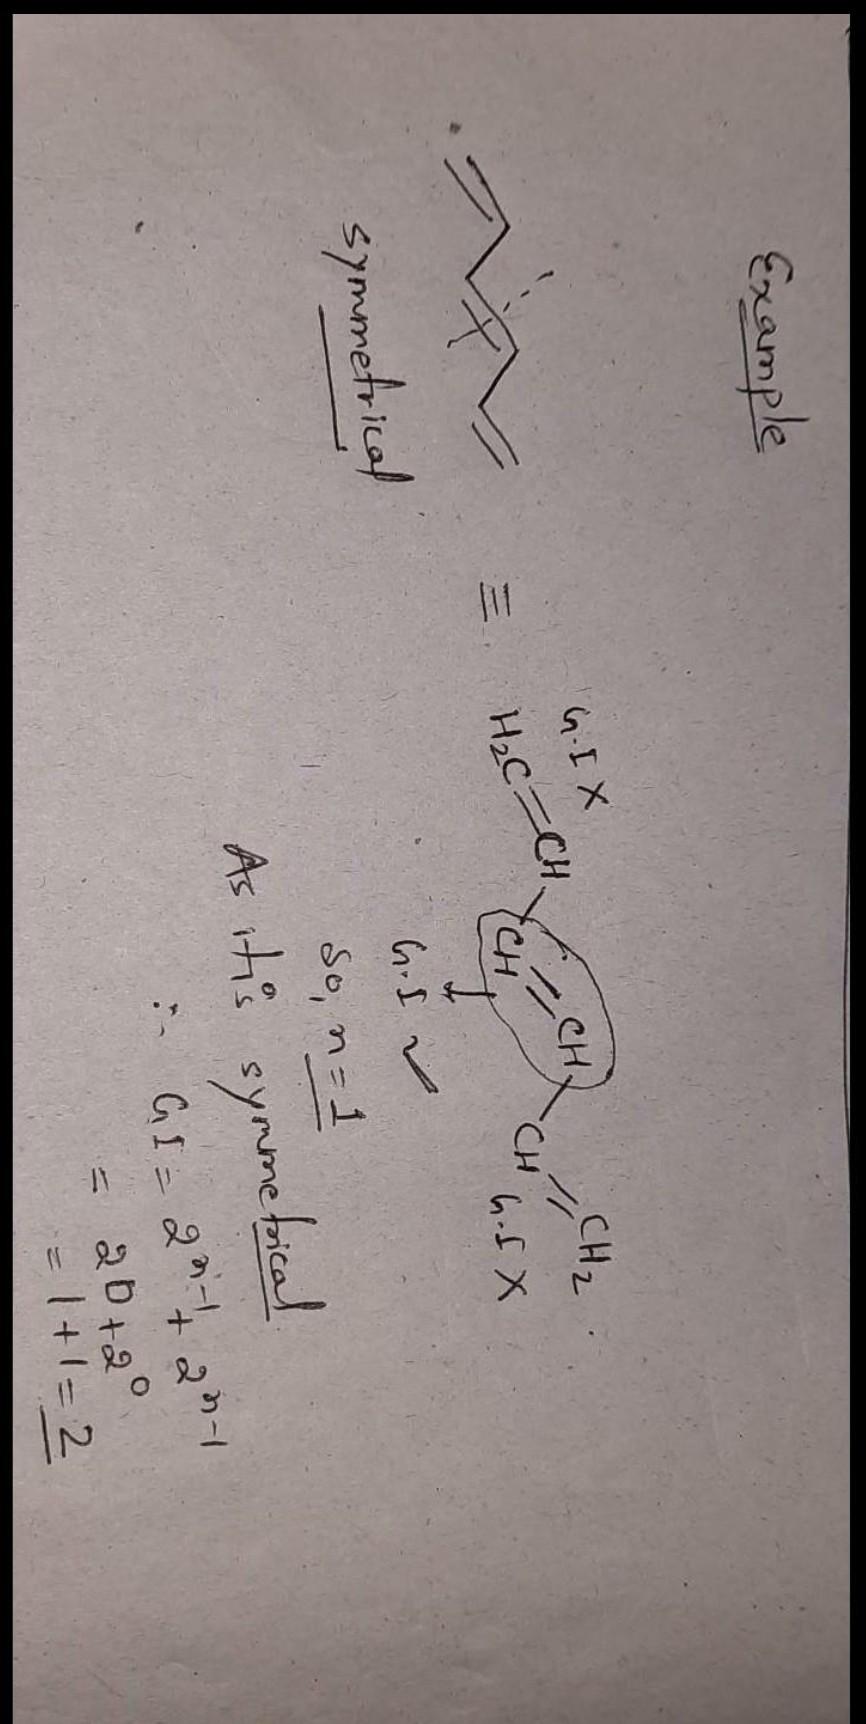 Example
symmetrical
≡
G.I X
H₂C=CH-CH=CH-CH=CH₂
G.I X
G.I ✓
So, n=1
As it's symmetrical
∴ G.I = 2ⁿ⁻¹ + 2ⁿ⁻¹
= 2⁰+2⁰
= 1+1=2